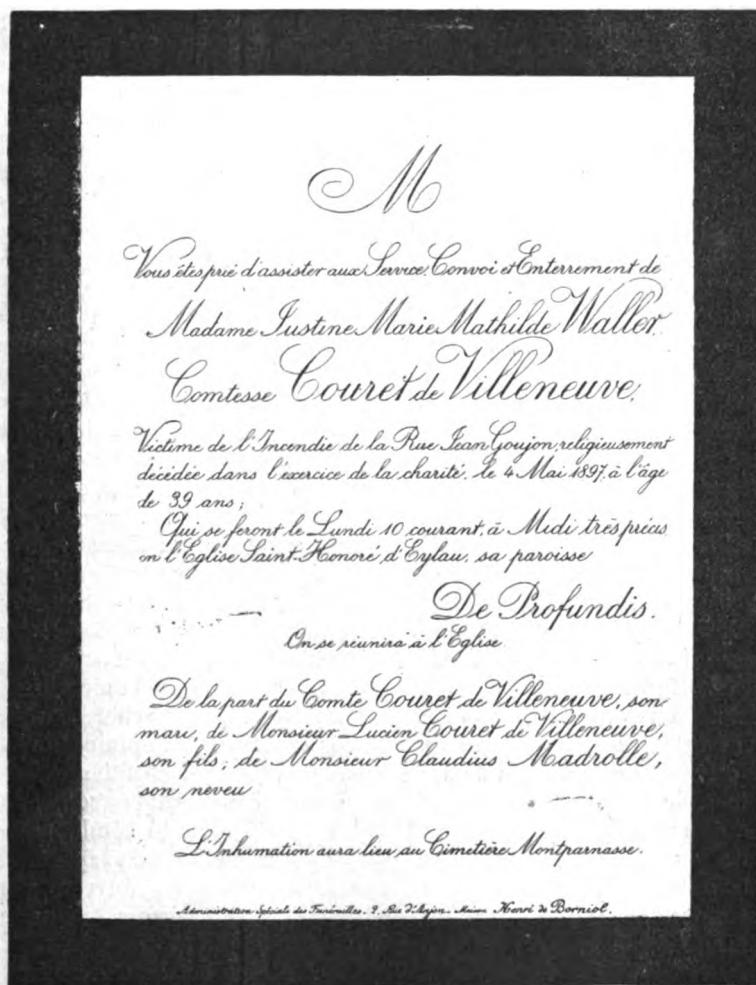 M
Vous êtes prié d'assister aux Service, Convoi et Enterrement de
Madame Justine Marie Mathilde Waller
Comtesse Couret de Villeneuve,
Victime de l'Incendie de la Rue Jean Goujon, religieusement
décédée dans l'exercice de la charité, le 4 Mai 1897, à l'âge
de 39 ans;
Qui se feront le Lundi 10 courant, à Midi très précis,
en l'Eglise Saint-Honoré d'Eylau, sa paroisse
De Profundis.
On se réunira à l'Eglise
De la part du Comte Couret de Villeneuve, son
mari, de Monsieur Lucien Couret de Villeneuve,
son fils; de Monsieur Claudius Madrolle,
son neveu
L'Inhumation aura lieu au Cimetière Montparnasse.
Administration Spéciale des Funérailles. 9, Rue d'Anjou. Maison Henri de Borniol.